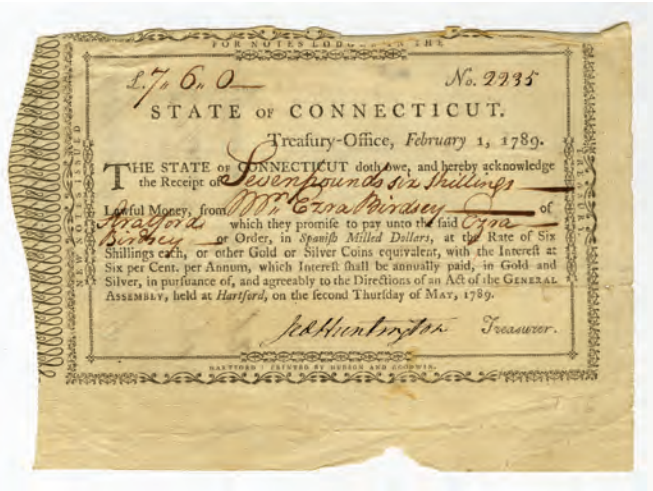 FOR NOTES LODGED IN THE
£7" 6" 0 No. 2235
STATE OF CONNECTICUT.
Treaſury-Office, February 1, 1789.
THE STATE OF CONNECTICUT doth owe, and hereby acknowledge
the Receipt of Seven pounds six shillings
Lawful Money, from Mr. Ezra Birdsey of
Stratford which they promiſe to pay unto the ſaid Ezra
Birdsey or Order, in Spaniſh Milled Dollars, at the Rate of Six
Shillings each, or other Gold or Silver Coins equivalent, with the Intereſt at
Six per Cent. per Annum, which Intereſt ſhall be annually paid, in Gold and
Silver, in purſuance of, and agreeably to the Directions of an Act of the GENERAL
ASSEMBLY, held at Hartford, on the ſecond Thurſday of MAY, 1789.
Jed Huntington Treasurer.
HARTFORD: PRINTED BY HUDSON AND GOODWIN.
NEW NOTES ISSUED
TREASURY